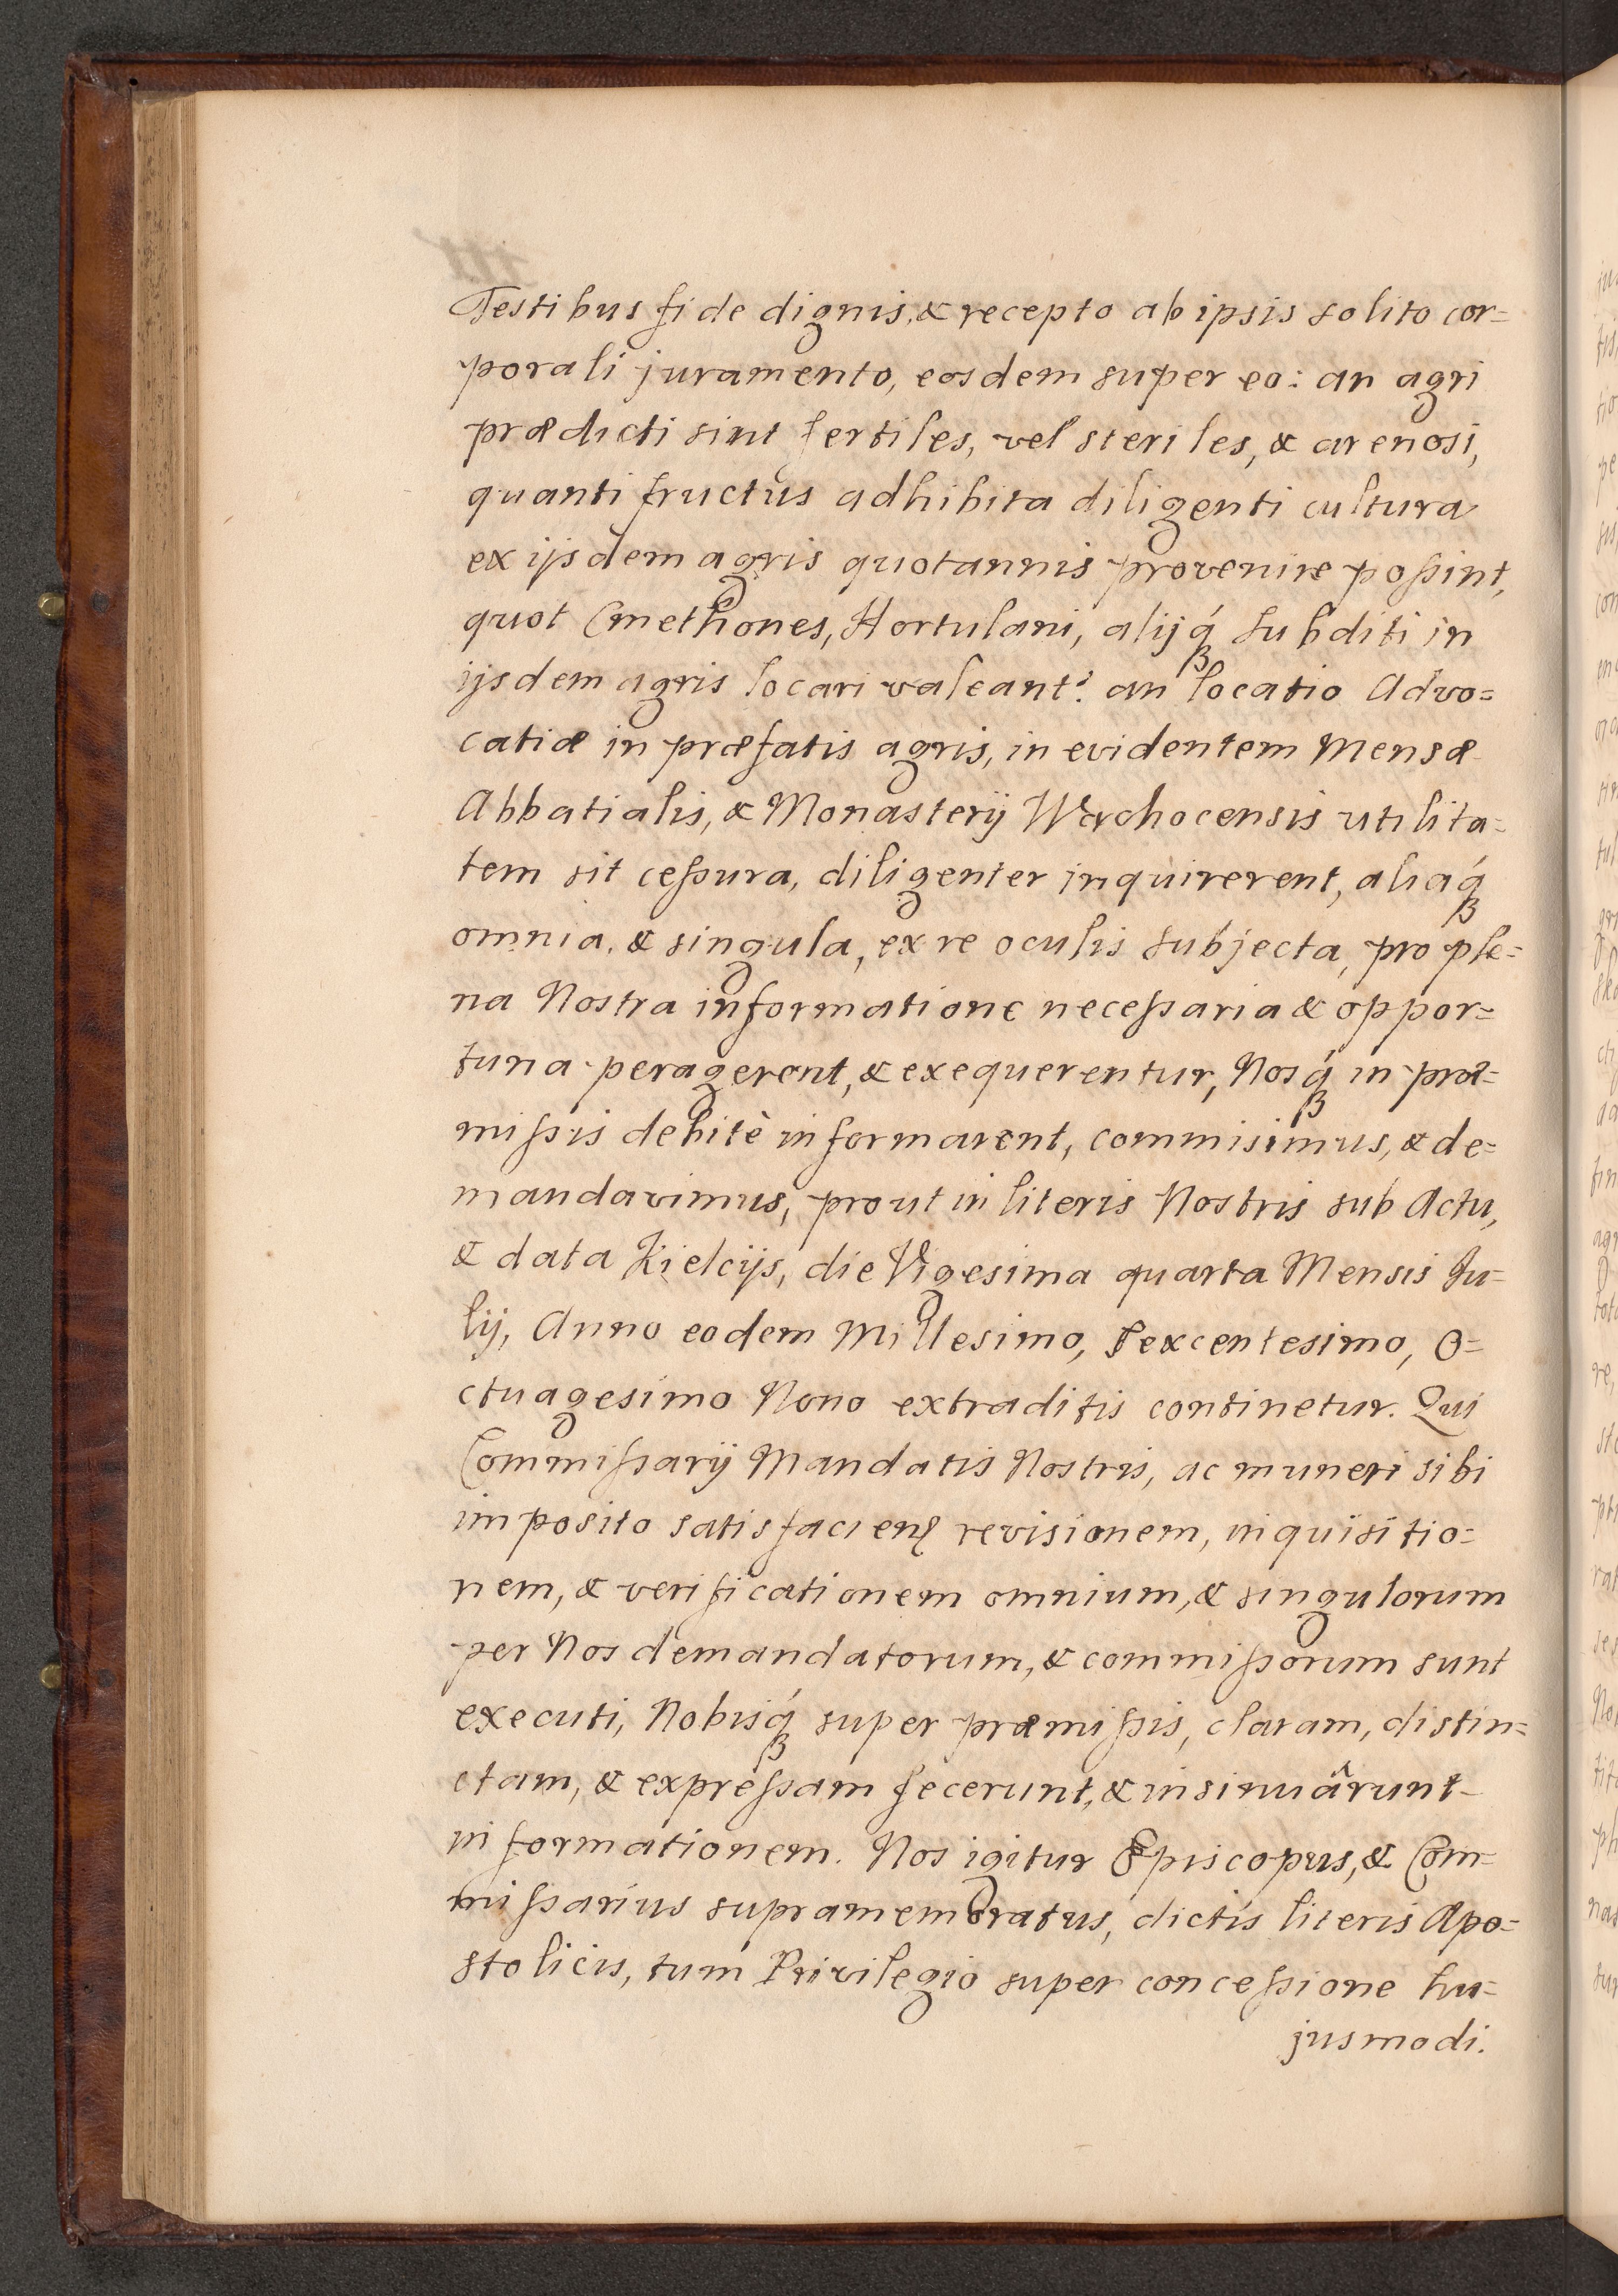 Testibus fide dignis, & recepto ab ipsis solito cor=
porali juramento, eosdem super eo: an agri
prædicti sint fertiles, vel steriles, & arenosi,
quanti fructus adhibita diligenti cultura
ex ijsdem agris quotannis provenire poßint,
quot Cmethones, Hortulani, alijq́ꝫ subditi in
ijsdem agris locari valeant? an locatio Advo=
catiæ in præfatis agris, in evidentem Mensæ
Abbatialis, & Monasterij Wąchocensis utilita=
tem sit ceßura, diligenter inquirerent, aliaq́ꝫ
omnia, & singula, ex re oculis subjecta, pro ple=
na Nostra informatione neceßaria & oppor=
tuna peragerent, & exequerentur, Nosq́ꝫ in præ=
mißis debitè informarent, commisimus, & de=
mandavimus, prout in literis Nostris sub Actu,
& data Kielcijs, die Vigesima quarta Mensis Ju=
lij, Anno eodem Millesimo, Sexcentesimo, O=
ctuagesimo Nono extraditis continetur. Qui
Commißarij Mandatis Nostris, ac muneri sibi
imposito satisfacienꝭ revisionem, inquisitio=
nem, & verificationem omnium, & singulorum
per Nos demandatorum, & commißorum sunt
executi, Nobisq́ꝫ super præmißis, claram, distin=
ctam, & expreßam fecerunt, & insinuârunt
informationem. Nos igitur Episcopus, & Com=
mißarius supramemoratus, dictis literis Apo=
stolicis, tum Privilegio super conceßione hu=
jusmodi.